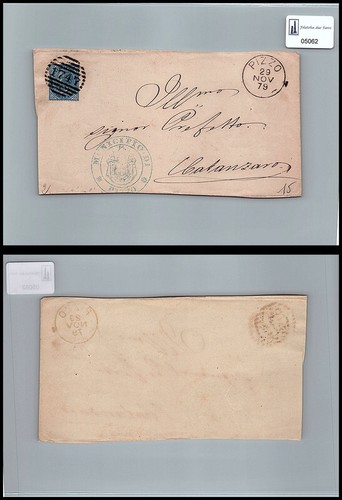 Filatelia dei Sette
05062
1747
PIZZO
29
NOV
79
Illmo
signor Prefetto.
Catanzaro.
MUNICIPIO DI
15